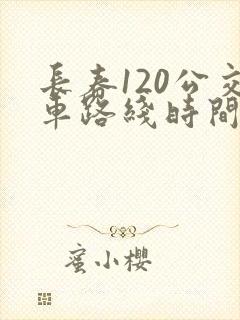 長春120公交
車路綫時間
蜜小櫻